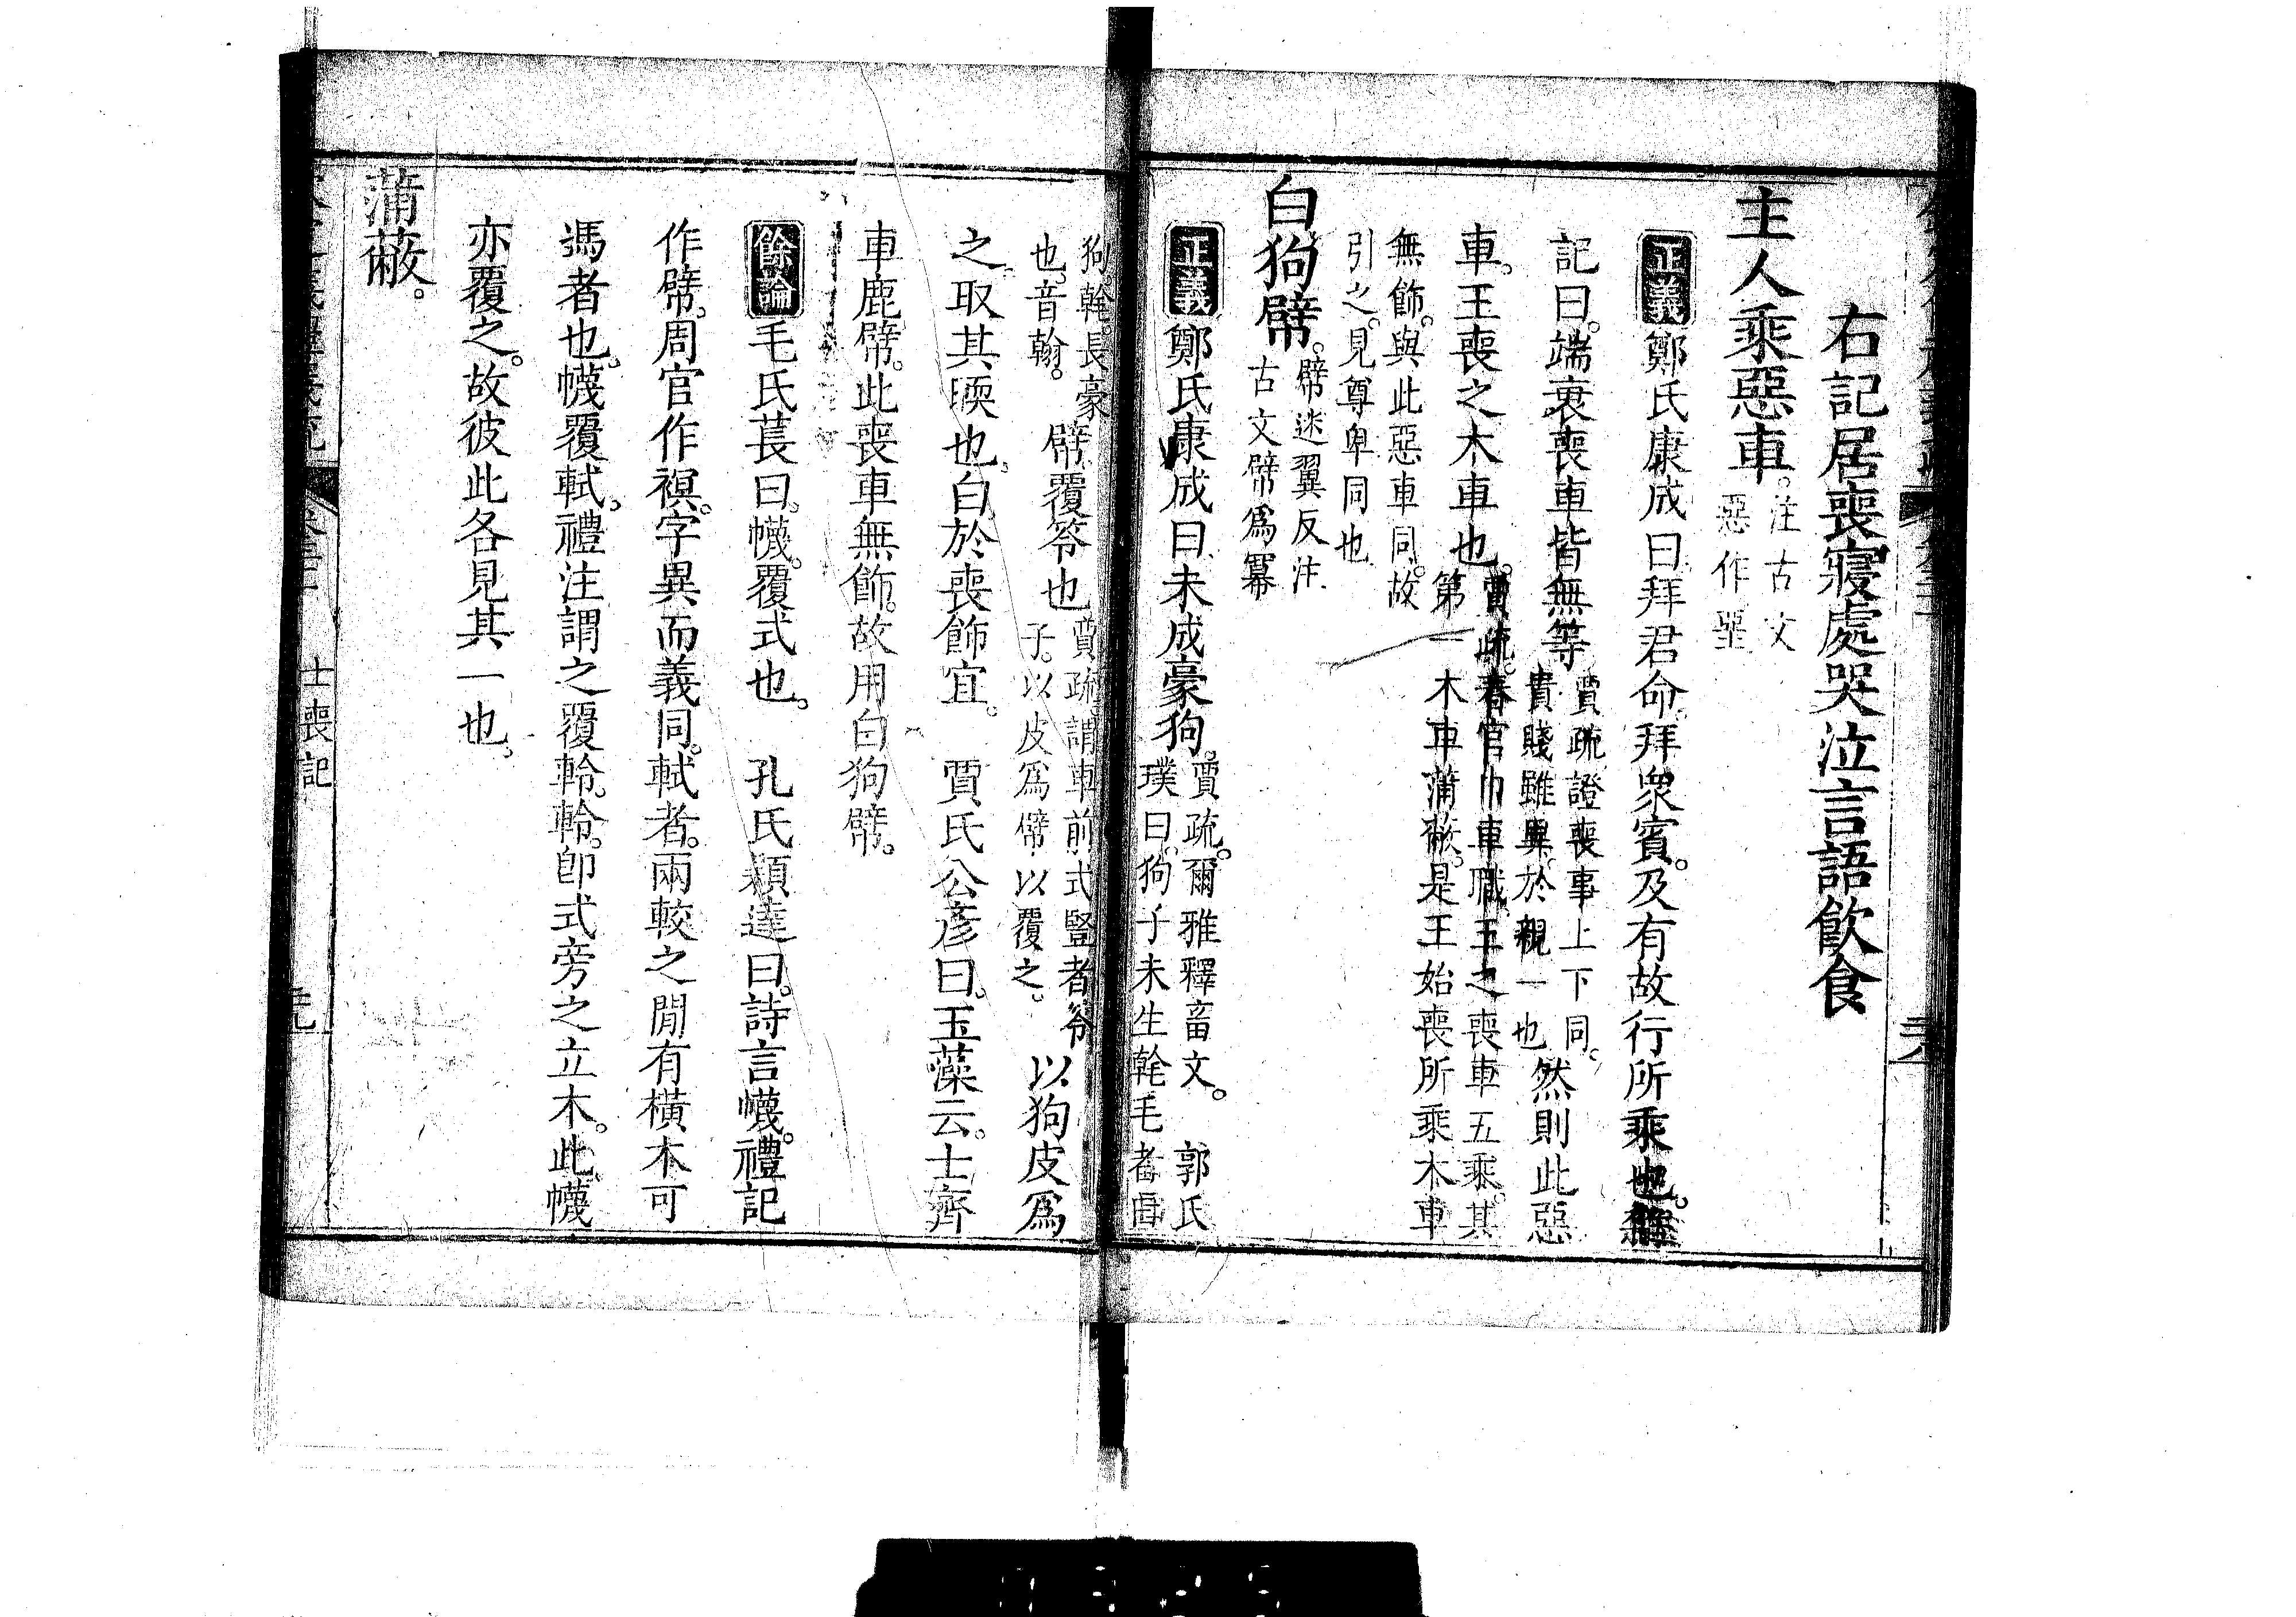 右記居喪寢處哭泣言語飲食
主人乘惡車。注古文
惡作堊
正義鄭氏康成曰拜君命拜衆賓。及有故行所乘也。雜
記曰。端衰喪車皆無等賈疏證喪事上下同。
貴賤雖異。於親一也然則此惡
車。王喪之木車也。賈疏。春官巾車職王之喪車五乘。其
第一木車蒲蔽。是王始喪所乘木車
無飾。與此惡車同。故
引之。見尊卑同也
白狗幦。幦迷翼反注
古文幦爲冪
正義鄭氏康成曰未成豪狗。賈疏。爾雅釋畜文。郭氏
璞曰。狗子未生㲦毛者
狗。㲦。長豪
也。音翰。幦覆笭也賈疏。謂車前式豎者笭
子。以皮爲幦以覆之。以狗皮爲
之。取其臑也。白於喪飾宜。 賈氏公彥曰。玉藻云。士齊
車鹿幦。此喪車無飾。故用白狗幦。
餘論毛氏萇曰。幭。覆式也。 孔氏穎達曰。詩言幭。禮記
作幦。周官作𧜀。字異而義同。軾者。兩較之閒有橫木可
馮者也。幭覆軾。禮注謂之覆軨。軨。卽式旁之立木。此幭
亦覆之。故彼此各見其一也。
蒲蔽。
士喪記